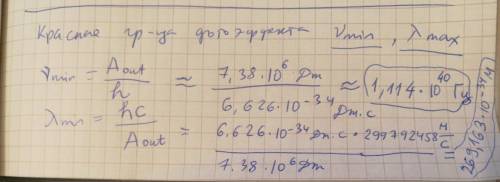 Красная гр-ца фотоэффекта νmin, λmax
νmin = Aout / h ≈ 7,38·10⁶ Дж / 6,626·10⁻³⁴ Дж.с ≈ 1,114·10⁴⁰ Гц
λmin = hc / Aout = 6,626·10⁻³⁴ Дж.с · 299792458 м/с / 7.38·10⁶ Дж =
269,163·10⁻³⁴ м